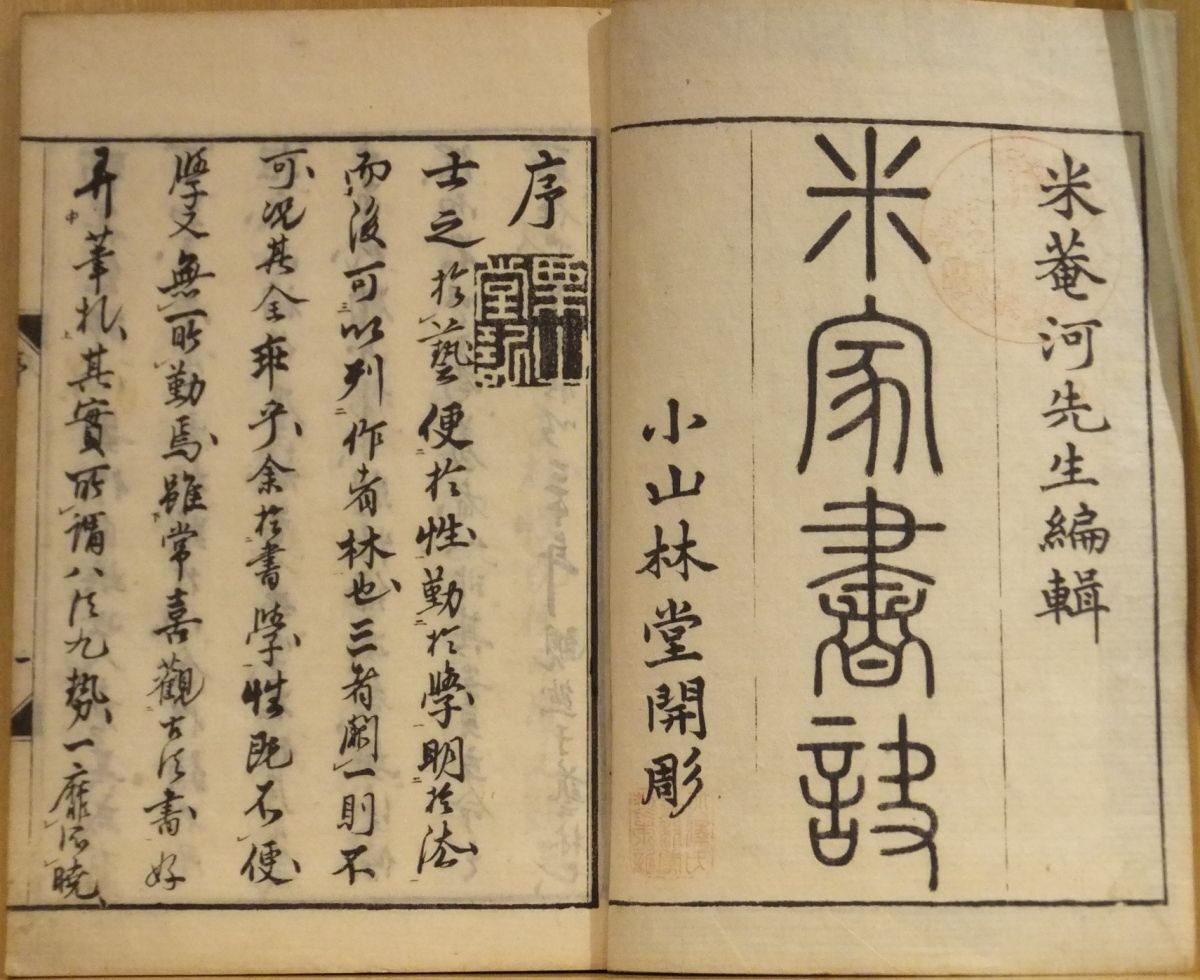 米菴河先生編輯
米家書訣
小山林堂開彫
序
士之於藝便於性勤於學明於法
而後可以列作者林也三者闕一則不
可況其全乎余於書學性既不便
學又無所勤焉雖常喜觀古法書好
弄筆札其實所謂八法九勢一靡不曉